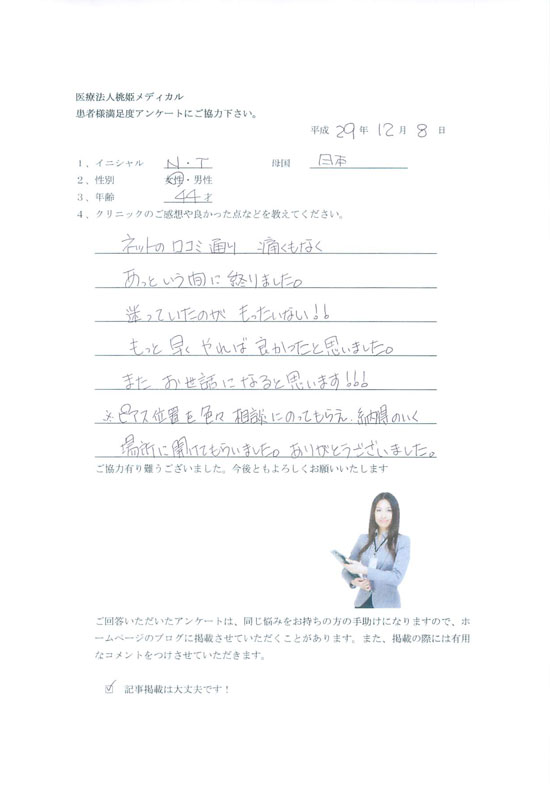 医療法人桃姫メディカル
患者様満足度アンケートにご協力下さい。
平成 29 年 12 月 8 日
1、イニシャル N・T 母国 日本
2、性別 女性・男性
3、年齢 44才
4、クリニックのご感想や良かった点などを教えてください。
ネットの口コミ通り 痛くもなく
あっという間に終りました。
迷っていたのが もったいない!!
もっと早くやれば良かったと思いました。
また お世話になると思います!!!
※ピアス位置を色々相談にのってもらえ、納得のいく
場所に開けてもらいました。ありがとうございました。
ご協力有り難うございました。今後ともよろしくお願いいたします
ご回答いただいたアンケートは、同じ悩みをお持ちの方の手助けになりますので、ホ
ームページのブログに掲載させていただくことがあります。また、掲載の際には有用
なコメントをつけさせていただきます。
☑ 記事掲載は大丈夫です!